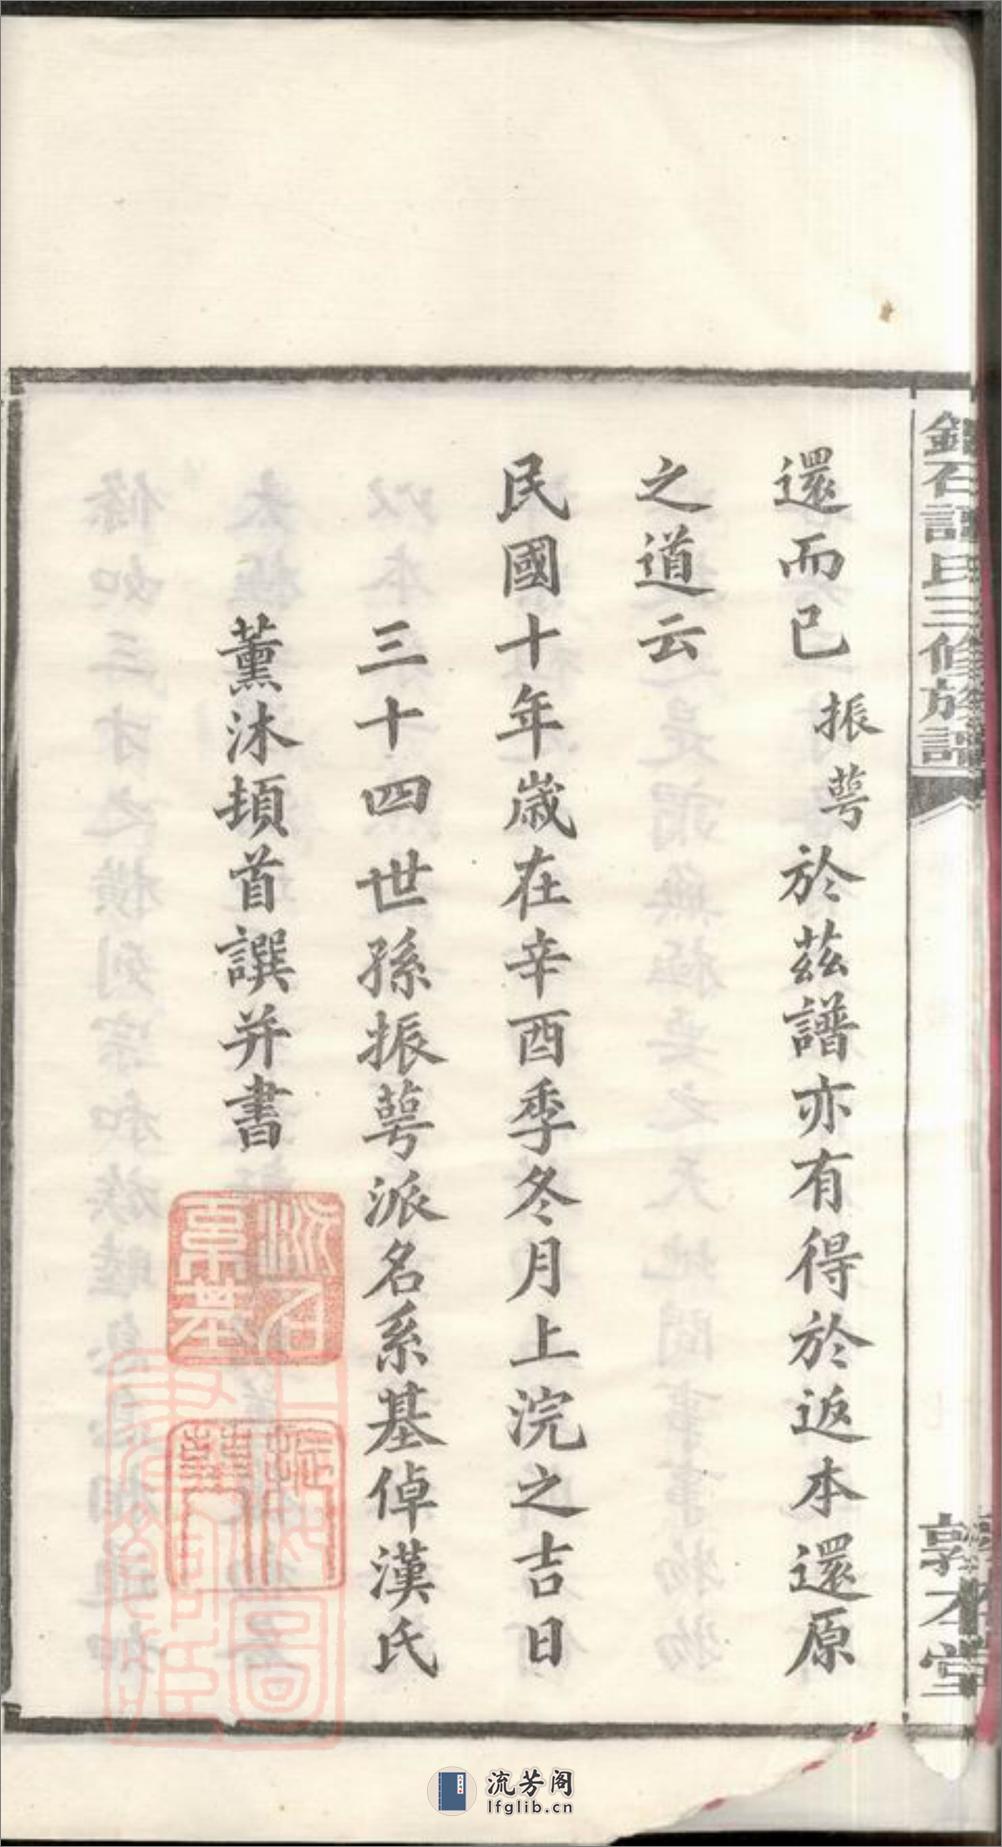 還而已振萼於茲譜亦有得於返本還原
之道云
民國十年歲在辛酉季冬月上浣之吉日
三十四世孫振萼派名系基倬漢氏
薰沐頓首譔并書
石譚氏三修族譜
敦本堂
流芳阁
lfglib.cn